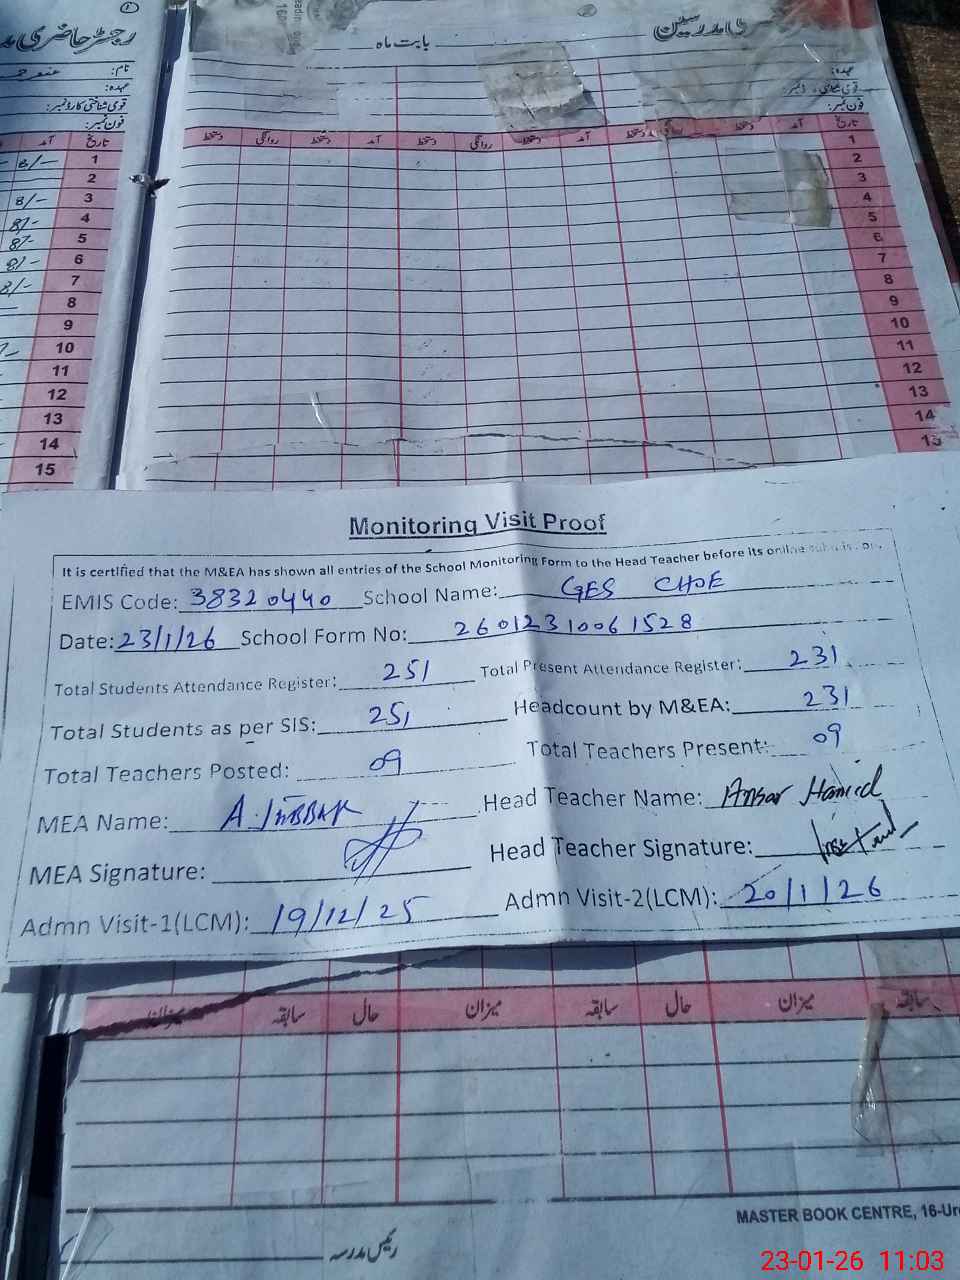 رجسٹر حاضری
بابت ماہ
مدرسین
نام:
عہدہ:
قومی شناختی کارڈ نمبر:
فون نمبر:
عہدہ:
فون نمبر:
آمد تاریخ
دستخط روانگی دستخط آمد دستخط روانگی دستخط آمد دستخط روانگی دستخط آمد تاریخ
8/- 1
2
8/- 3
8/- 4
8/- 5
8/- 6
8/- 7
8
9
10
11
12
13
14
15
1
2
3
4
5
6
7
8
9
10
11
12
13
14
15
Monitoring Visit Proof
It is certified that the M&EA has shown all entries of the School Monitoring Form to the Head Teacher before its online
EMIS Code: 38320440 School Name: GES CHOE
Date: 23/1/26 School Form No: 26012310061528
Total Students Attendance Register: 251 Total Present Attendance Register: 231
Total Students as per SIS: 251 Headcount by M&EA: 231
Total Teachers Posted: 09 Total Teachers Present: 09
MEA Name: A. JABBAR Head Teacher Name: Ansar Hamid
MEA Signature: Head Teacher Signature:
Admn Visit-1(LCM): 19/12/25 Admn Visit-2(LCM): 20/1/26
میزان سابقہ حال میزان سابقہ حال میزان سابقہ
MASTER BOOK CENTRE, 16-Ur
رئیس مدرسہ
23-01-26 11:03